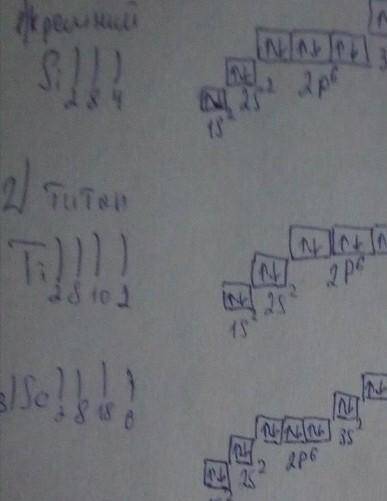 Кремний
Si ) ) )
2 8 4
1s² 2s² 2p⁶ 3
2) Титан
Ti ) ) ) )
2 8 10 2
1s² 2s² 2p⁶
3) Se ) ) ) )
2 8 18 6
2s² 2p⁶ 3s²